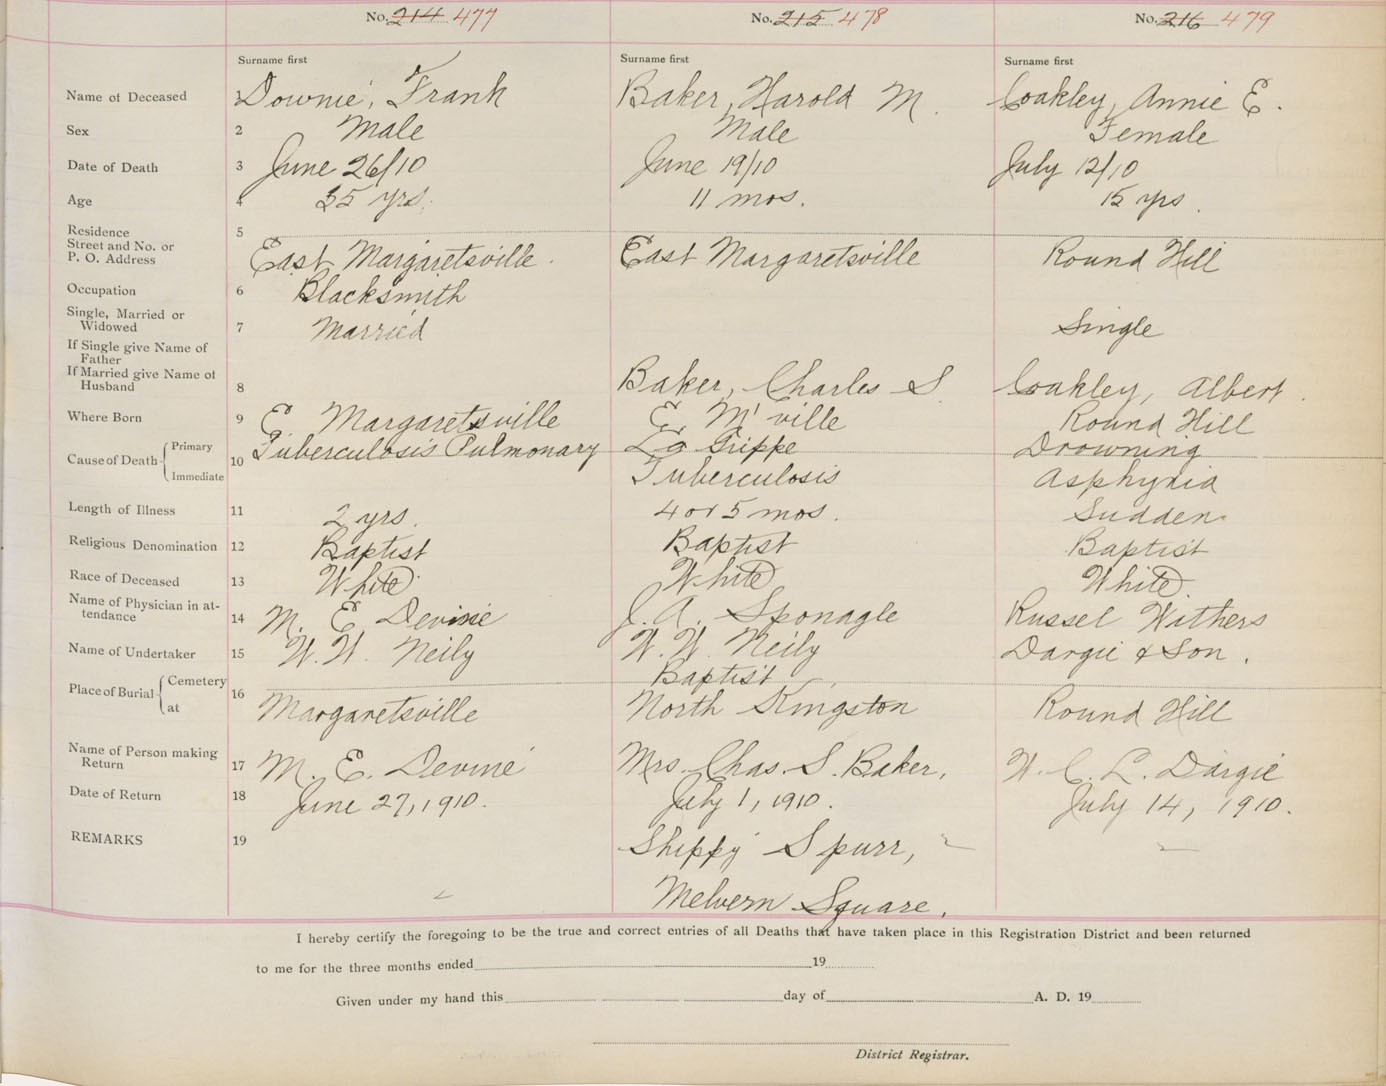 No. 214 477 No. 215 478 No. 216 479
Surname first Surname first Surname first
Name of Deceased 1 Downie, Frank Baker, Harold M. Coakley, Annie E.
Sex 2 Male Male Female
Date of Death 3 June 26/10 June 19/10 July 12/10
Age 4 35 yrs. 11 mos. 15 yrs.
Residence 5
Street and No. or
P. O. Address East Margaretsville. East Margaretsville Round Hill
Occupation 6 Blacksmith
Single, Married or
Widowed 7 Married Single
If Single give Name of
Father
If Married give Name of
Husband 8 Baker, Charles S. Coakley, Albert.
Where Born 9 E Margaretsville E. M'ville Round Hill
Cause of Death Primary 10 Tuberculosis Pulmonary La Grippe Drowning
Immediate Tuberculosis Asphyxia
Length of Illness 11 2 yrs. 4 or 5 mos. Sudden.
Religious Denomination 12 Baptist Baptist Baptist
Race of Deceased 13 White White White
Name of Physician in at-
tendance 14 M. E. Devine J. A. Sponagle Russel Withers
Name of Undertaker 15 W. W. Neily W. W. Neily Dargie & Son.
Place of Burial Cemetery 16 Baptist
at Margaretsville North Kingston Round Hill
Name of Person making
Return 17 M. E. Devine Mrs. Chas. S. Baker, W. C. L. Dargie
Date of Return 18 June 27, 1910. July 1, 1910. July 14, 1910.
REMARKS 19 Shippy Spurr,
Melvern Square,
I hereby certify the foregoing to be the true and correct entries of all Deaths that have taken place in this Registration District and been returned
to me for the three months ended 19
Given under my hand this day of A. D. 19
District Registrar.